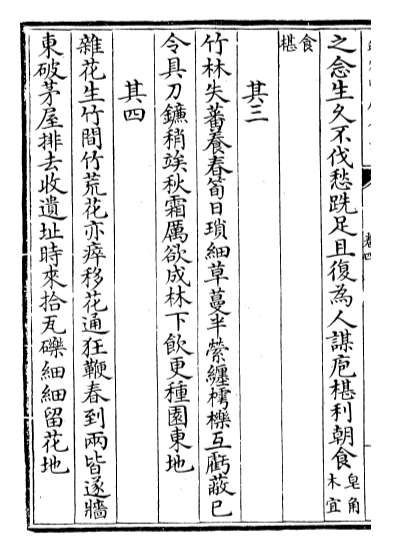 卷四
之念生久不伐愁跣足且復為人謀庖椹利朝食皂角木宜
食椹
其三
竹林失蕃養春筍日瑣細草蔓半縈纏樗櫟互虧蔽已
令具刀鐮稍竢秋霜厲欲成林下飲更種園東地
其四
雜花生竹間竹荒花亦瘁移花通狂鞭春到兩皆遂牆
東破茅屋排去收遺址時來拾瓦礫細細留花地